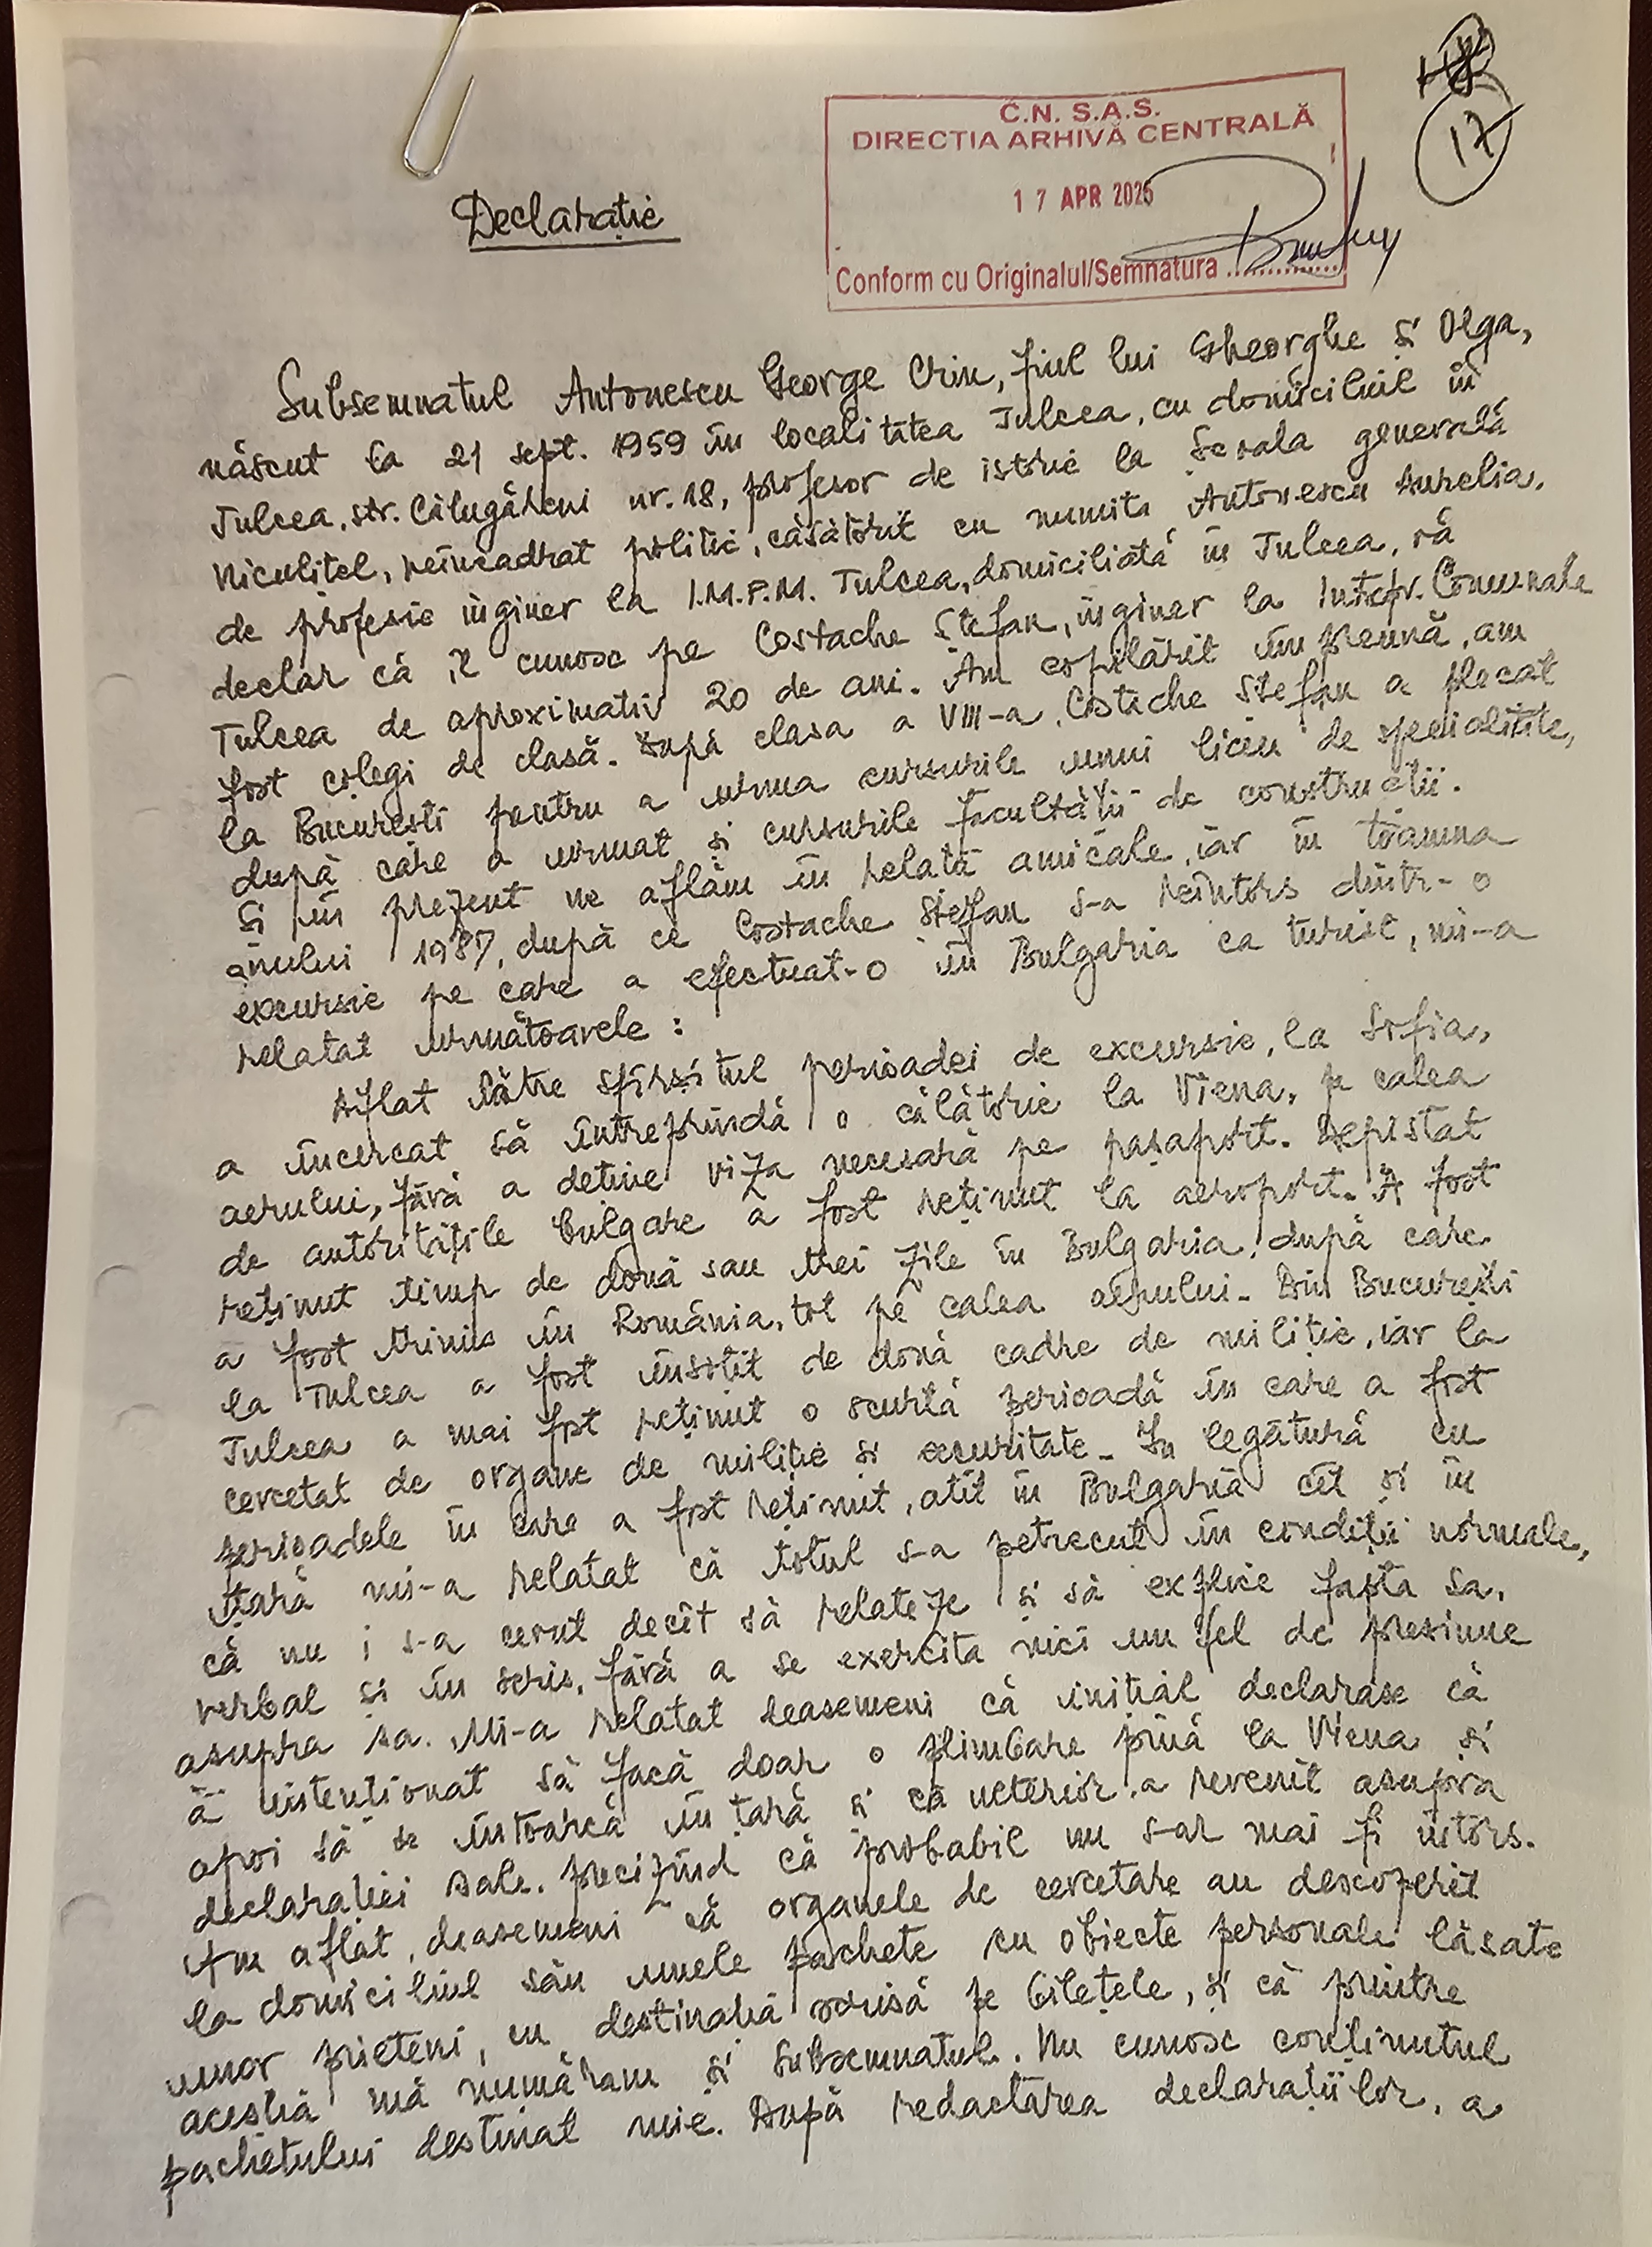 17
C.N. S.A.S.
DIRECTIA ARHIVĂ CENTRALĂ
17 APR 2025
Conform cu Originalul/Semnatura ..............
Declarație
Subsemnatul Antonescu George Crin, fiul lui Gheorghe și Olga,
născut la 21 sept. 1959 în localitatea Tulcea, cu domiciliul în
Tulcea, str. Călugăreni nr. 18, profesor de istorie la Școala generală
Niculițel, neîncadrat politic, căsătorit cu numita Antonescu Aurelia,
de profesie inginer la I.M.P.M. Tulcea, domiciliată în Tulcea, vă
declar că îl cunosc pe Costache Ștefan, inginer laIntrepr. Comunale
Tulcea de aproximativ 20 de ani. Am copilărit împreună, am
fost colegi de clasă. După clasa a VIII-a, Costache Ștefan a plecat
la București pentru a urma cursurile unui liceu de specialitate,
după care a urmat și cursurile facultății de construcții.
Și în prezent ne aflăm în relații amicale, iar în toamna
anului 1987, după ce Costache Ștefan s-a reîntors dintr-o
excursie pe care a efectuat-o în Bulgaria ca turist, mi-a
relatat următoarele :
Aflat către sfîrșitul perioadei de excursie, la Sofia,
a încercat să întreprindă o călătorie la Viena, pe calea
aerului, fără a deține viza necesară pe pașaport. Depistat
de autoritățile bulgare a fost reținut la aeroport. A fost
reținut timp de două sau trei zile în Bulgaria, după care
a fost trimis în România, tot pe calea aerului. Din București
la Tulcea a fost însoțit de două cadre de miliție, iar la
Tulcea a mai fost reținut o scurtă perioadă în care a fost
cercetat de organe de miliție și securitate. În legătură cu
perioadele în care a fost reținut, atît în Bulgaria cît și în
țară mi-a relatat că totul s-a petrecut în condiții normale,
că nu i s-a cerut decît să relateze și să explice fapta sa,
verbal și în scris, fără a se exercita nici un fel de presiune
asupra sa. Mi-a relatat deasemeni că inițial declarase că
a intenționat să facă doar o plimbare pînă la Viena și
apoi să se întoarcă în țară și că ulterior a revenit asupra
declarației sale, precizînd că probabil nu s-ar mai fi întors.
Am aflat, deasemeni că organele de cercetare au descoperit
la domiciliul său unele pachete cu obiecte personale lăsate
unor prieteni, cu destinația scrisă pe bilețele, și că printre
aceștia mă număram și subsemnatul. Nu cunosc conținutul
pachetului destinat mie. După redactarea declarațiilor, a